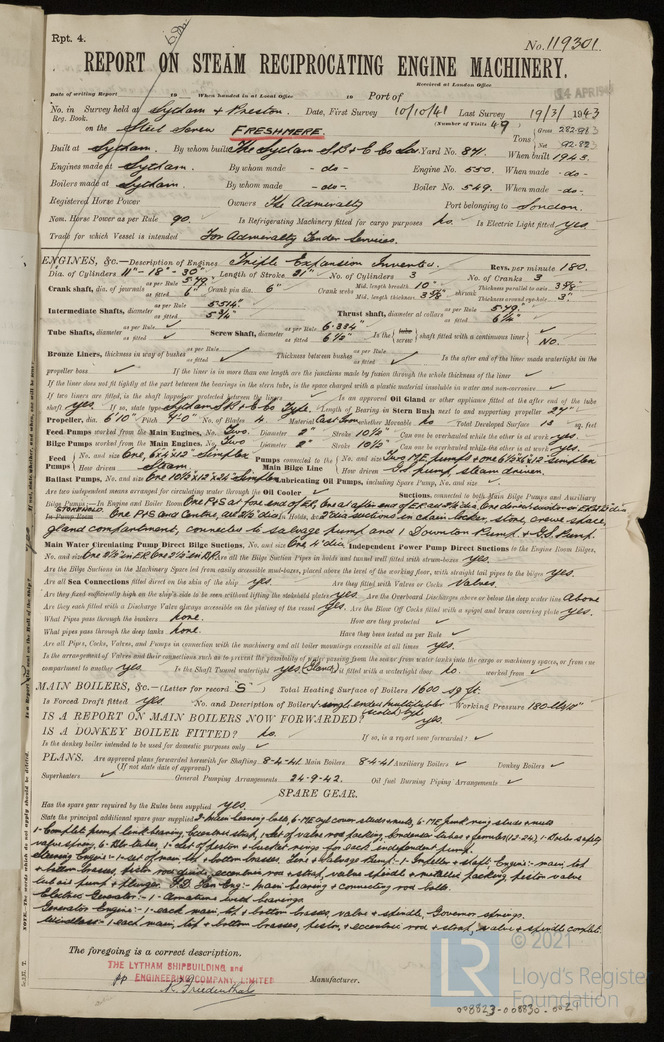 Rpt. 4.
No. 119301
REPORT ON STEAM RECIPROCATING ENGINE MACHINERY.
Received at London Office
14 APR 194
Date of writing Report 19 When handed in at Local Office 19 Port of
No. in Survey held at Lytham & Preston. Date, First Survey 10/10/41 Last Survey 19/3/1943
Reg. Book. (Number of Visits 49)
on the Steel Screw FRESHMERE Tons Gross 282.983 Net 92.823
Built at Lytham. By whom built The Lytham S.B & E Co Ltd. Yard No. 871. When built 1943.
Engines made at Lytham. By whom made - do - Engine No. 550. When made - do -
Boilers made at Lytham. By whom made - do - Boiler No. 549. When made - do -
Registered Horse Power Owners The Admiralty Port belonging to London.
Nom. Horse Power as per Rule 90. Is Refrigerating Machinery fitted for cargo purposes No. Is Electric Light fitted yes.
Trade for which Vessel is intended For Admiralty Tender Services.
ENGINES, &c.—Description of Engines Triple Expansion Inverted. Revs. per minute 180.
Dia. of Cylinders 11" - 18" - 30" Length of Stroke 21" No. of Cylinders 3 No. of Cranks 3
Crank shaft, dia. of journals as per Rule 5.79" as fitted 6" Crank pin dia. 6" Crank webs Mid. length breadth 10" Mid. length thickness 3 7/8" shrunk Thickness parallel to axis 3 7/8" Thickness around eye-hole 3"
Intermediate Shafts, diameter as per Rule 5.514" as fitted 5 3/4" Thrust shaft, diameter at collars as per Rule 5.79" as fitted 6 1/4"
Tube Shafts, diameter as per Rule as fitted Screw Shaft, diameter as per Rule 6.334" as fitted 6 1/2" Is the tube screw shaft fitted with a continuous liner No.
Bronze Liners, thickness in way of bushes as per Rule as fitted Thickness between bushes as per Rule as fitted Is the after end of the liner made watertight in the
propeller boss If the liner is in more than one length are the junctions made by fusion through the whole thickness of the liner
If the liner does not fit tightly at the part between the bearings in the stern tube, is the space charged with a plastic material insoluble in water and non-corrosive
If two liners are fitted, is the shaft lapped or protected between the liners Is an approved Oil Gland or other appliance fitted at the after end of the tube
shaft yes. If so, state type Lytham S.B. & E Co Type. Length of Bearing in Stern Bush next to and supporting propeller 27"
Propeller, dia. 6'10" Pitch 7'-0" No. of Blades 4 Material Cast Iron whether Moveable No Total Developed Surface 13 sq. feet
Feed Pumps worked from the Main Engines, No. Two Diameter 2" Stroke 10 1/2" Can one be overhauled while the other is at work yes.
Bilge Pumps worked from the Main Engines, No. Two Diameter 2" Stroke 10 1/2" Can one be overhauled while the other is at work yes.
Feed Pumps No. and size One, 6"x4"x12" Simplex How driven steam. Pumps connected to the Main Bilge Line No. and size Two ME pumps & one 6"x6"x12" simplex How driven GS pump steam driven.
Ballast Pumps, No. and size One 10"x12"x24" Simplex Lubricating Oil Pumps, including Spare Pump, No. and size
Are two independent means arranged for circulating water through the Oil Cooler Suctions, connected to both Main Bilge Pumps and Auxiliary
Bilge Pumps:—In Engine and Boiler Room
STOKEHOLD
In Pump Room In Holds, &c. 2" dia suctions in chain locker, store, crews space,
gland compartment, connected to salvage pump and 1 Downton Pump & GS Pump.
Main Water Circulating Pump Direct Bilge Suctions, No. and size One 4" dia. Independent Power Pump Direct Suctions to the Engine Room Bilges,
No. and size Are all the Bilge Suction Pipes in holds and tunnel well fitted with strum-boxes yes.
Are the Bilge Suctions in the Machinery Space led from easily accessible mud-boxes, placed above the level of the working floor, with straight tail pipes to the bilges yes.
Are all Sea Connections fitted direct on the skin of the ship yes. Are they fitted with Valves or Cocks Valves.
Are they fixed sufficiently high on the ship's side to be seen without lifting the stokehold plates yes Are the Overboard Discharges above or below the deep water line Above
Are they each fitted with a Discharge Valve always accessible on the plating of the vessel yes. Are the Blow Off Cocks fitted with a spigot and brass covering plate yes.
What Pipes pass through the bunkers None. How are they protected
What pipes pass through the deep tanks None. Have they been tested as per Rule
Are all Pipes, Cocks, Valves, and Pumps in connection with the machinery and all boiler mountings accessible at all times yes.
Is the arrangement of Valves and their connections such as to prevent the possibility of water passing from the sea or from water tanks into the cargo or machinery spaces, or from one
compartment to another yes. Is the Shaft Tunnel watertight yes. (Gland) Is it fitted with a watertight door No. worked from
MAIN BOILERS, &c.—(Letter for record "S") Total Heating Surface of Boilers 1600 sq ft.
Is Forced Draft fitted yes. No. and Description of Boilers 1-single ended multitubular Scotch type Working Pressure 180
IS A REPORT ON MAIN BOILERS NOW FORWARDED? yes.
IS A DONKEY BOILER FITTED? No. If so, is a report now forwarded?
Is the donkey boiler intended to be used for domestic purposes only
PLANS. Are approved plans forwarded herewith for Shafting 8-4-41 Main Boilers 8-4-41 Auxiliary Boilers Donkey Boilers
(If not state date of approval)
Superheaters General Pumping Arrangements 24-9-42. Oil fuel Burning Piping Arrangements
SPARE GEAR.
Has the spare gear required by the Rules been supplied yes.
State the principal additional spare gear supplied 2 Main bearing bolts, 6-ME cyl cover studs & nuts, 6-ME junk ring studs & nuts
1-Complete pump link bearing, Eccentric strap, 1-set of valve rod packing, Condenser tubes & ferrules (12-24), 1-Boiler safety
valve spring, 6-Blr tubes, 1-Set of piston & bucket rings for each independent pump.
Steering Engine:- 1-set of main, top & bottom brasses, Fire & Salvage Pump:- 1-Impeller & shaft, Engine:- main, top
& bottom brasses, piston rod guide, eccentric rod & strap, valve spindle & metallic packing, piston valve
lub oil pump & plunger. F.D. Fan Eng:- main bearing & connecting rod bolts.
Electric Generator:- 1-Armature with bearings.
Generator Engine:- 1-each main, top & bottom brasses, valve & spindle, Governor springs.
Windlass:- 1 each main, top & bottom brasses, piston, & eccentric rod & strap, valve & spindle complete
The foregoing is a correct description.
THE LYTHAM SHIPBUILDING and
pp ENGINEERING COMPANY, LIMITED
Manufacturer.
LR
© 2021
Lloyd's Register
Foundation
008823-008830-0021
NOTE.—The words which do not apply should be deleted.